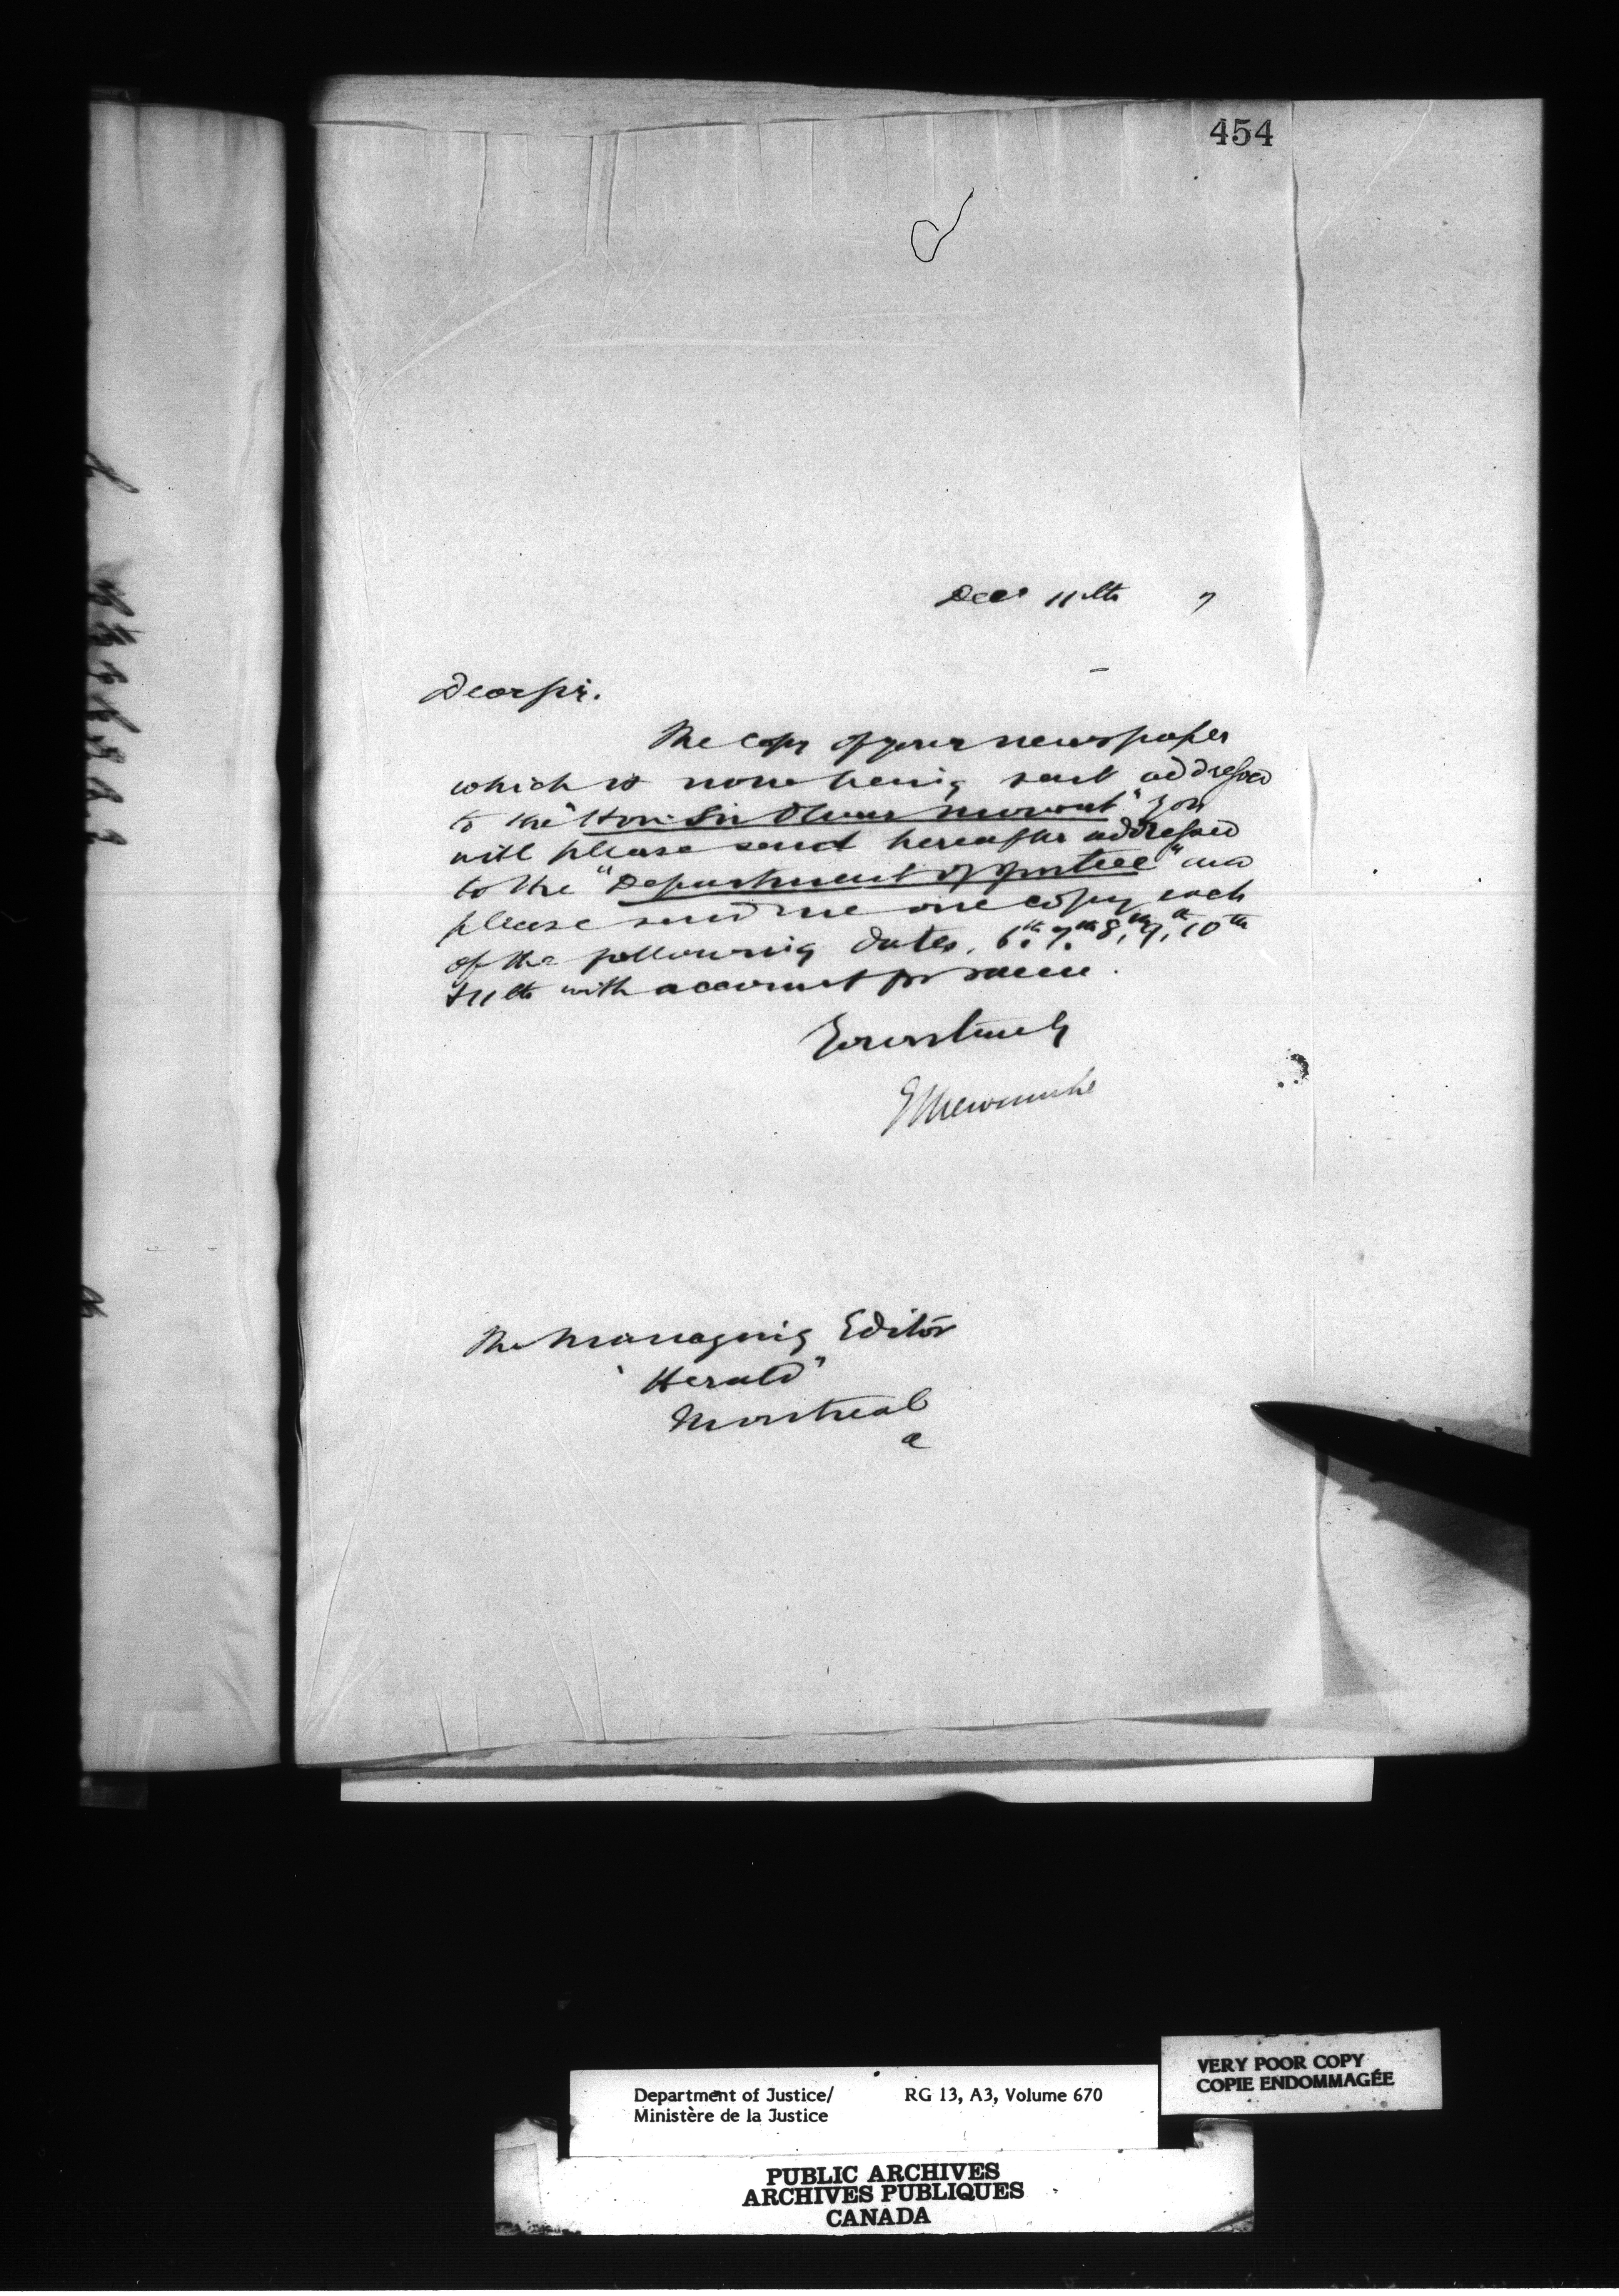 454
Dec 11th 7
Dear Sir.
The copy of your newspaper
which is now being sent addressed
to the "Hon. Sir Oliver Mowat" you
will please send hereafter addressed
to the "Department of Justice" and
please send me one copy each
of the following dates, 6th, 7th 8th, 9th, 10th
& 11th with account for same.
Yours truly
E L Newcombe
The Managing Editor
"Herald"
Montreal
Department of Justice/
Ministère de la Justice
RG 13, A3, Volume 670
VERY POOR COPY
COPIE ENDOMMAGÉE
PUBLIC ARCHIVES
ARCHIVES PUBLIQUES
CANADA